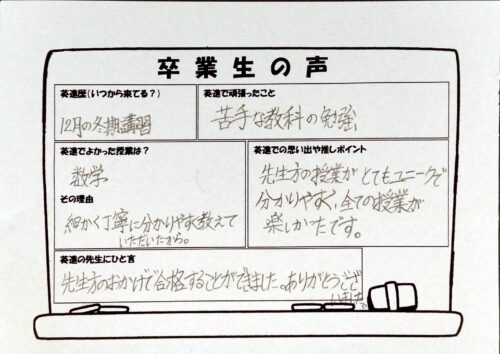 卒業生の声
英進歴(いつから来てる?)
12月の冬期講習
英進で頑張ったこと
苦手な教科の勉強
英進でよかった授業は?
数学
その理由
細かく丁寧に分かりやすく教えて
いただいたから。
英進での思い出や推しポイント
先生方の授業がとてもユニークで
分かりやすく、全ての授業が
楽しかったです。
英進の先生にひと言
先生方のおかげで合格することができました。ありがとうござ
いました。